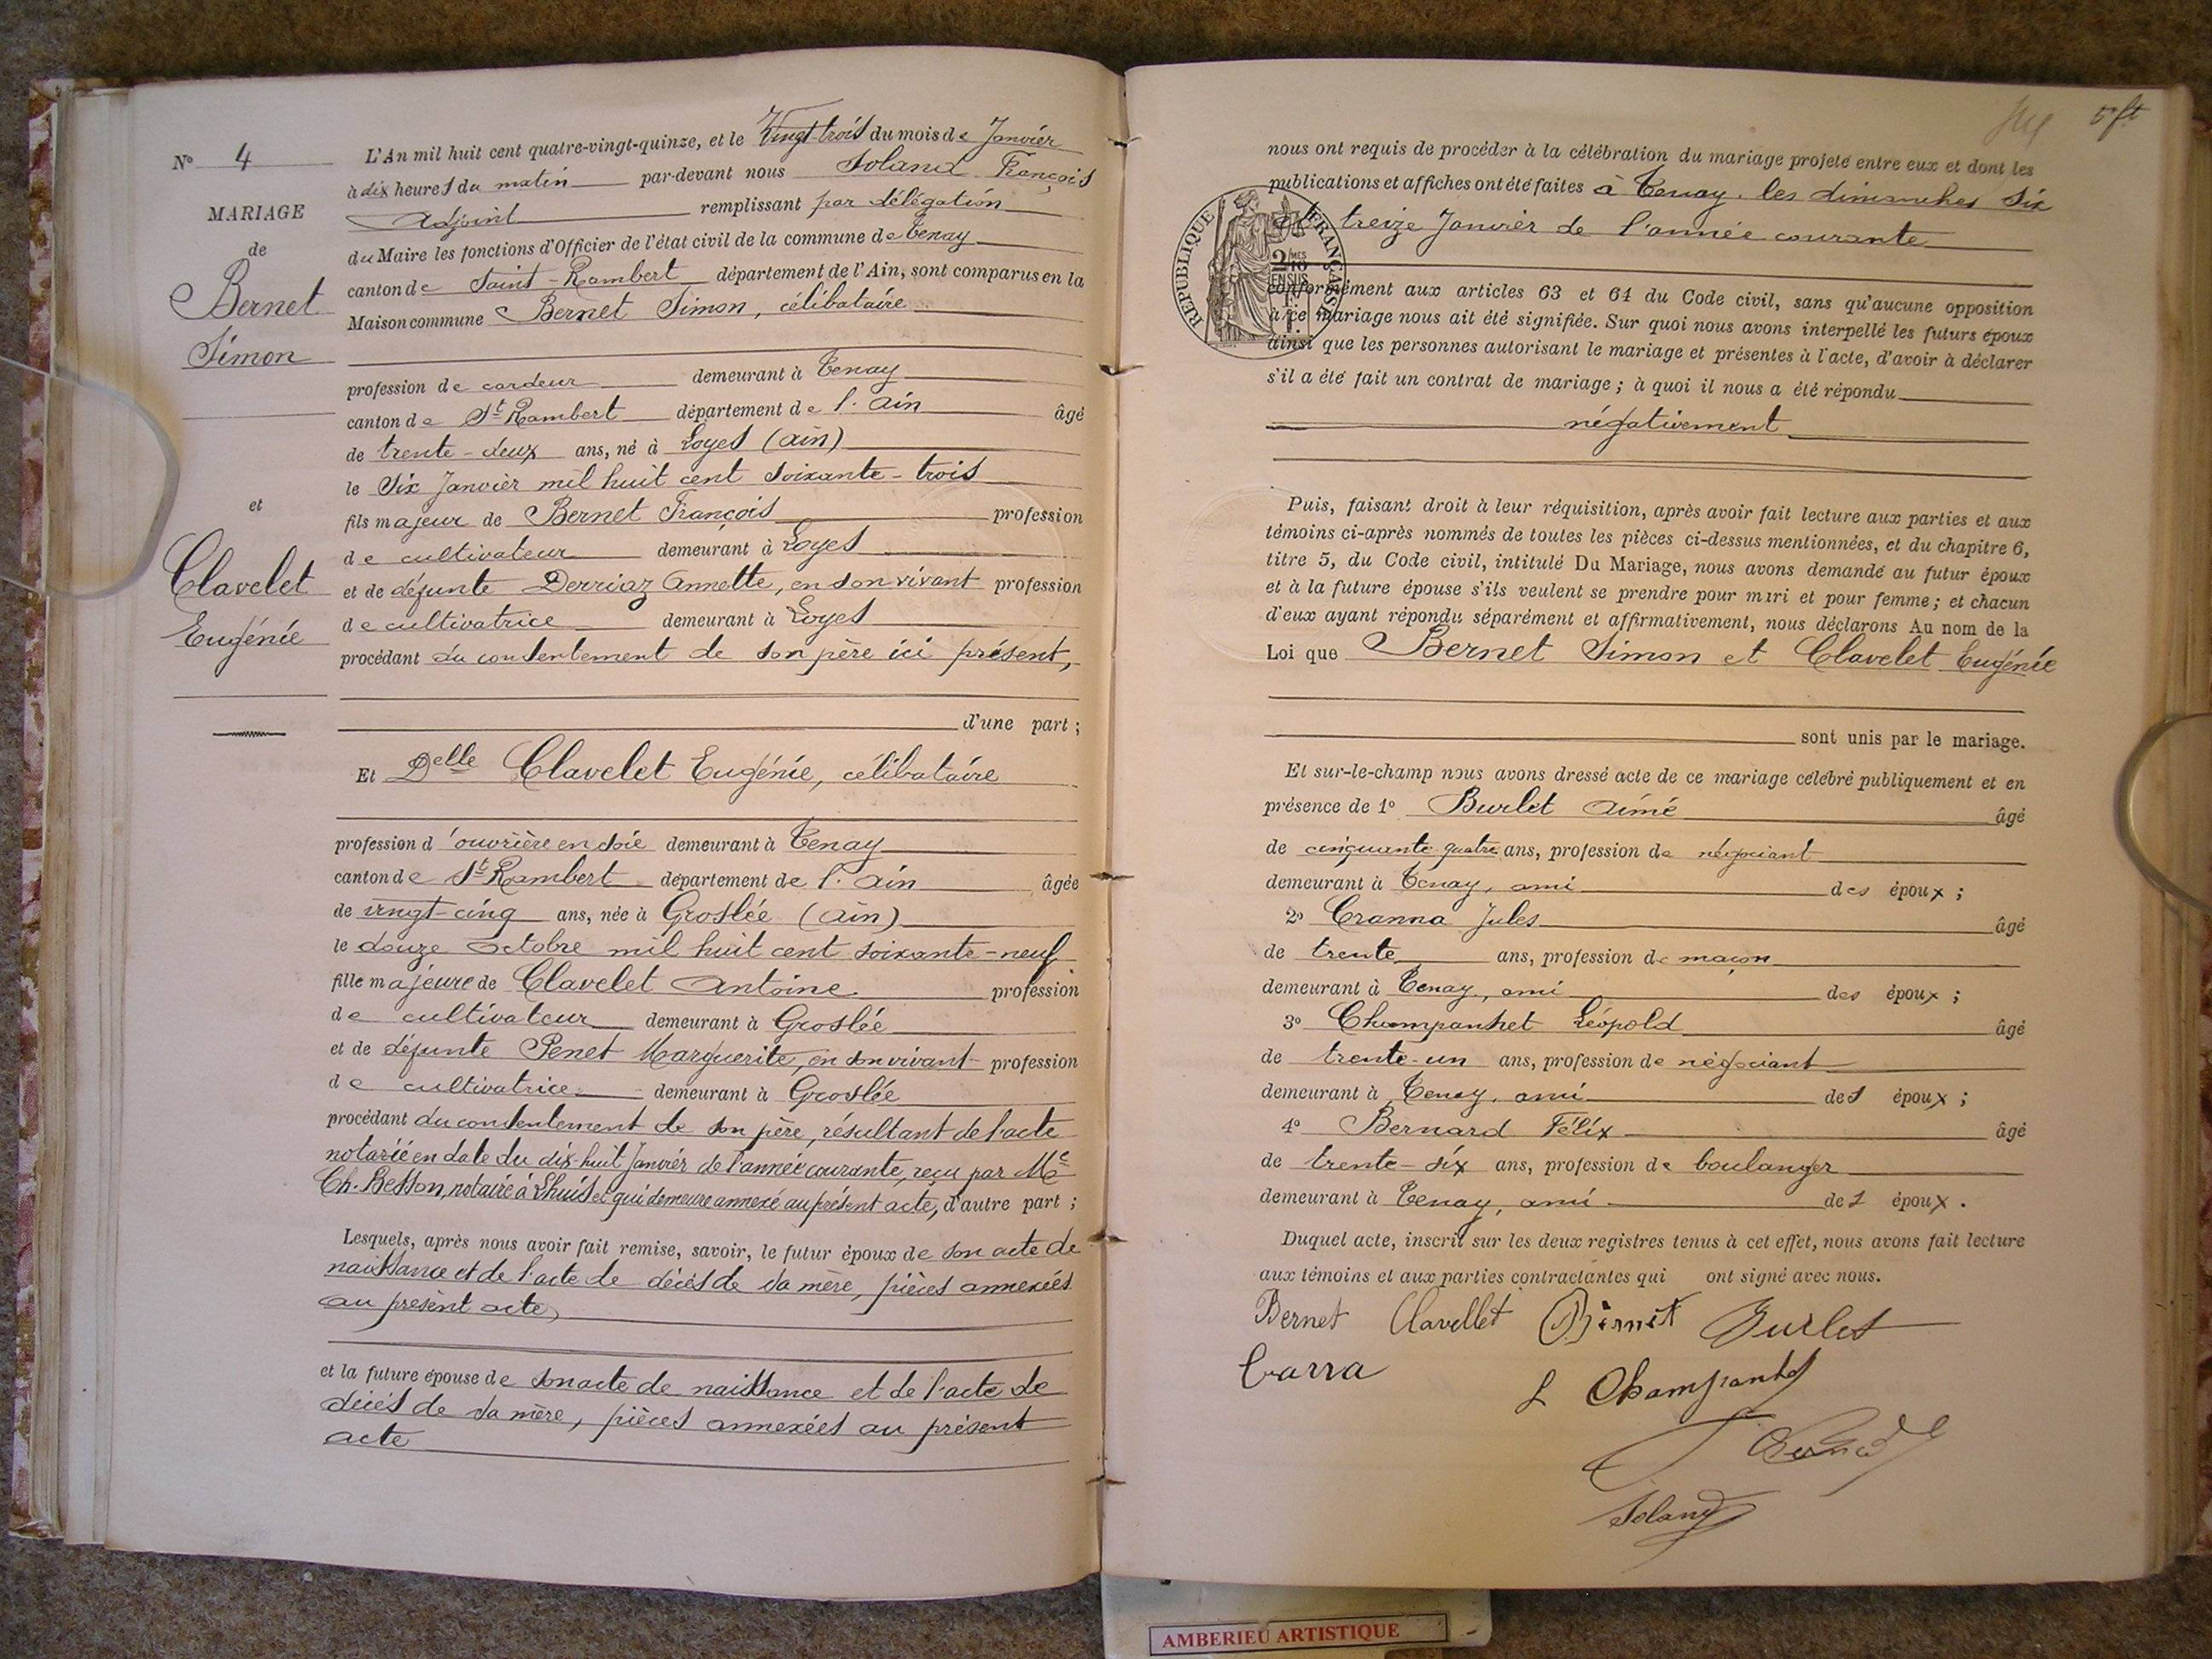 N° 4
MARIAGE
de
Bernet
Simon
et
Clavelet
Eugénie
L'An mil huit cent quatre-vingt-quinze, et le Vingt-trois du mois de Janvier
à dix heures du matin par-devant nous Soland François
Adjoint remplissant par délégation
du Maire les fonctions d'Officier de l'état civil de la commune de Tenay
canton de Saint-Rambert département de l'Ain, sont comparus en la
Maison commune Bernet Simon, célibataire
profession de cardeur demeurant à Tenay
canton de St Rambert département de l'Ain âgé
de trente-deux ans, né à Loyes (Ain)
le six Janvier mil huit cent soixante-trois
fils majeur de Bernet François profession
de cultivateur demeurant à Loyes
et de défunte Derriaz Annette, en son vivant profession
de cultivatrice demeurant à Loyes
procédant du consentement de son père ici présent,
d'une part ;
Et Delle Clavelet Eugénie, célibataire
profession d'ouvrière en soie demeurant à Tenay
canton de St Rambert département de l'Ain âgée
de vingt-cinq ans, née à Groslée (Ain)
le douze Octobre mil huit cent soixante-neuf
fille majeure de Clavelet Antoine profession
de cultivateur demeurant à Groslée
et de défunte Penet Marguerite, en son vivant profession
de cultivatrice demeurant à Groslée
procédant du consentement de son père, résultant de l'acte
notarié en date du dix-huit Janvier de l'année courante, reçu par Me
Ch. Besson, notaire à Lhuis et qui demeure annexé au présent acte, d'autre part ;
Lesquels, après nous avoir fait remise, savoir, le futur époux de son acte de
naissance et de l'acte de décès de sa mère, pièces annexées
au présent acte,
et la future épouse de son acte de naissance et de l'acte de
décès de sa mère, pièces annexées au présent
acte
5 ft
nous ont requis de procéder à la célébration du mariage projeté entre eux et dont les
publications et affiches ont été faites à Tenay, les dimanches six
et treize Janvier de l'année courante
RÉPUBLIQUE FRANÇAISE
2/10MES
EN SUS
conformément aux articles 63 et 64 du Code civil, sans qu'aucune opposition
à ce mariage nous ait été signifiée. Sur quoi nous avons interpellé les futurs époux
ainsi que les personnes autorisant le mariage et présentes à l'acte, d'avoir à déclarer
s'il a été fait un contrat de mariage ; à quoi il nous a été répondu
négativement
Puis, faisant droit à leur réquisition, après avoir fait lecture aux parties et aux
témoins ci-après nommés de toutes les pièces ci-dessus mentionnées, et du chapitre 6,
titre 5, du Code civil, intitulé Du Mariage, nous avons demandé au futur époux
et à la future épouse s'ils veulent se prendre pour mari et pour femme ; et chacun
d'eux ayant répondu séparément et affirmativement, nous déclarons Au nom de la
Loi que Bernet Simon et Clavelet Eugénie
sont unis par le mariage.
Et sur-le-champ nous avons dressé acte de ce mariage célébré publiquement et en
présence de 1° Burlet Aimé âgé
de cinquante-quatre ans, profession de négociant
demeurant à Tenay, ami des époux ;
2° Cranna Jules âgé
de trente ans, profession de maçon
demeurant à Tenay, ami des époux ;
3° Champanhet Léopold âgé
de trente-un ans, profession de négociant
demeurant à Tenay, ami des époux ;
4° Bernard Félix âgé
de trente-six ans, profession de boulanger
demeurant à Tenay, ami des époux .
Duquel acte, inscrit sur les deux registres tenus à cet effet, nous avons fait lecture
aux témoins et aux parties contractantes qui ont signé avec nous.
Bernet Clavellet Bernet Burlet
L Champanhet
Bernard
Soland
AMBERIEU ARTISTIQUE